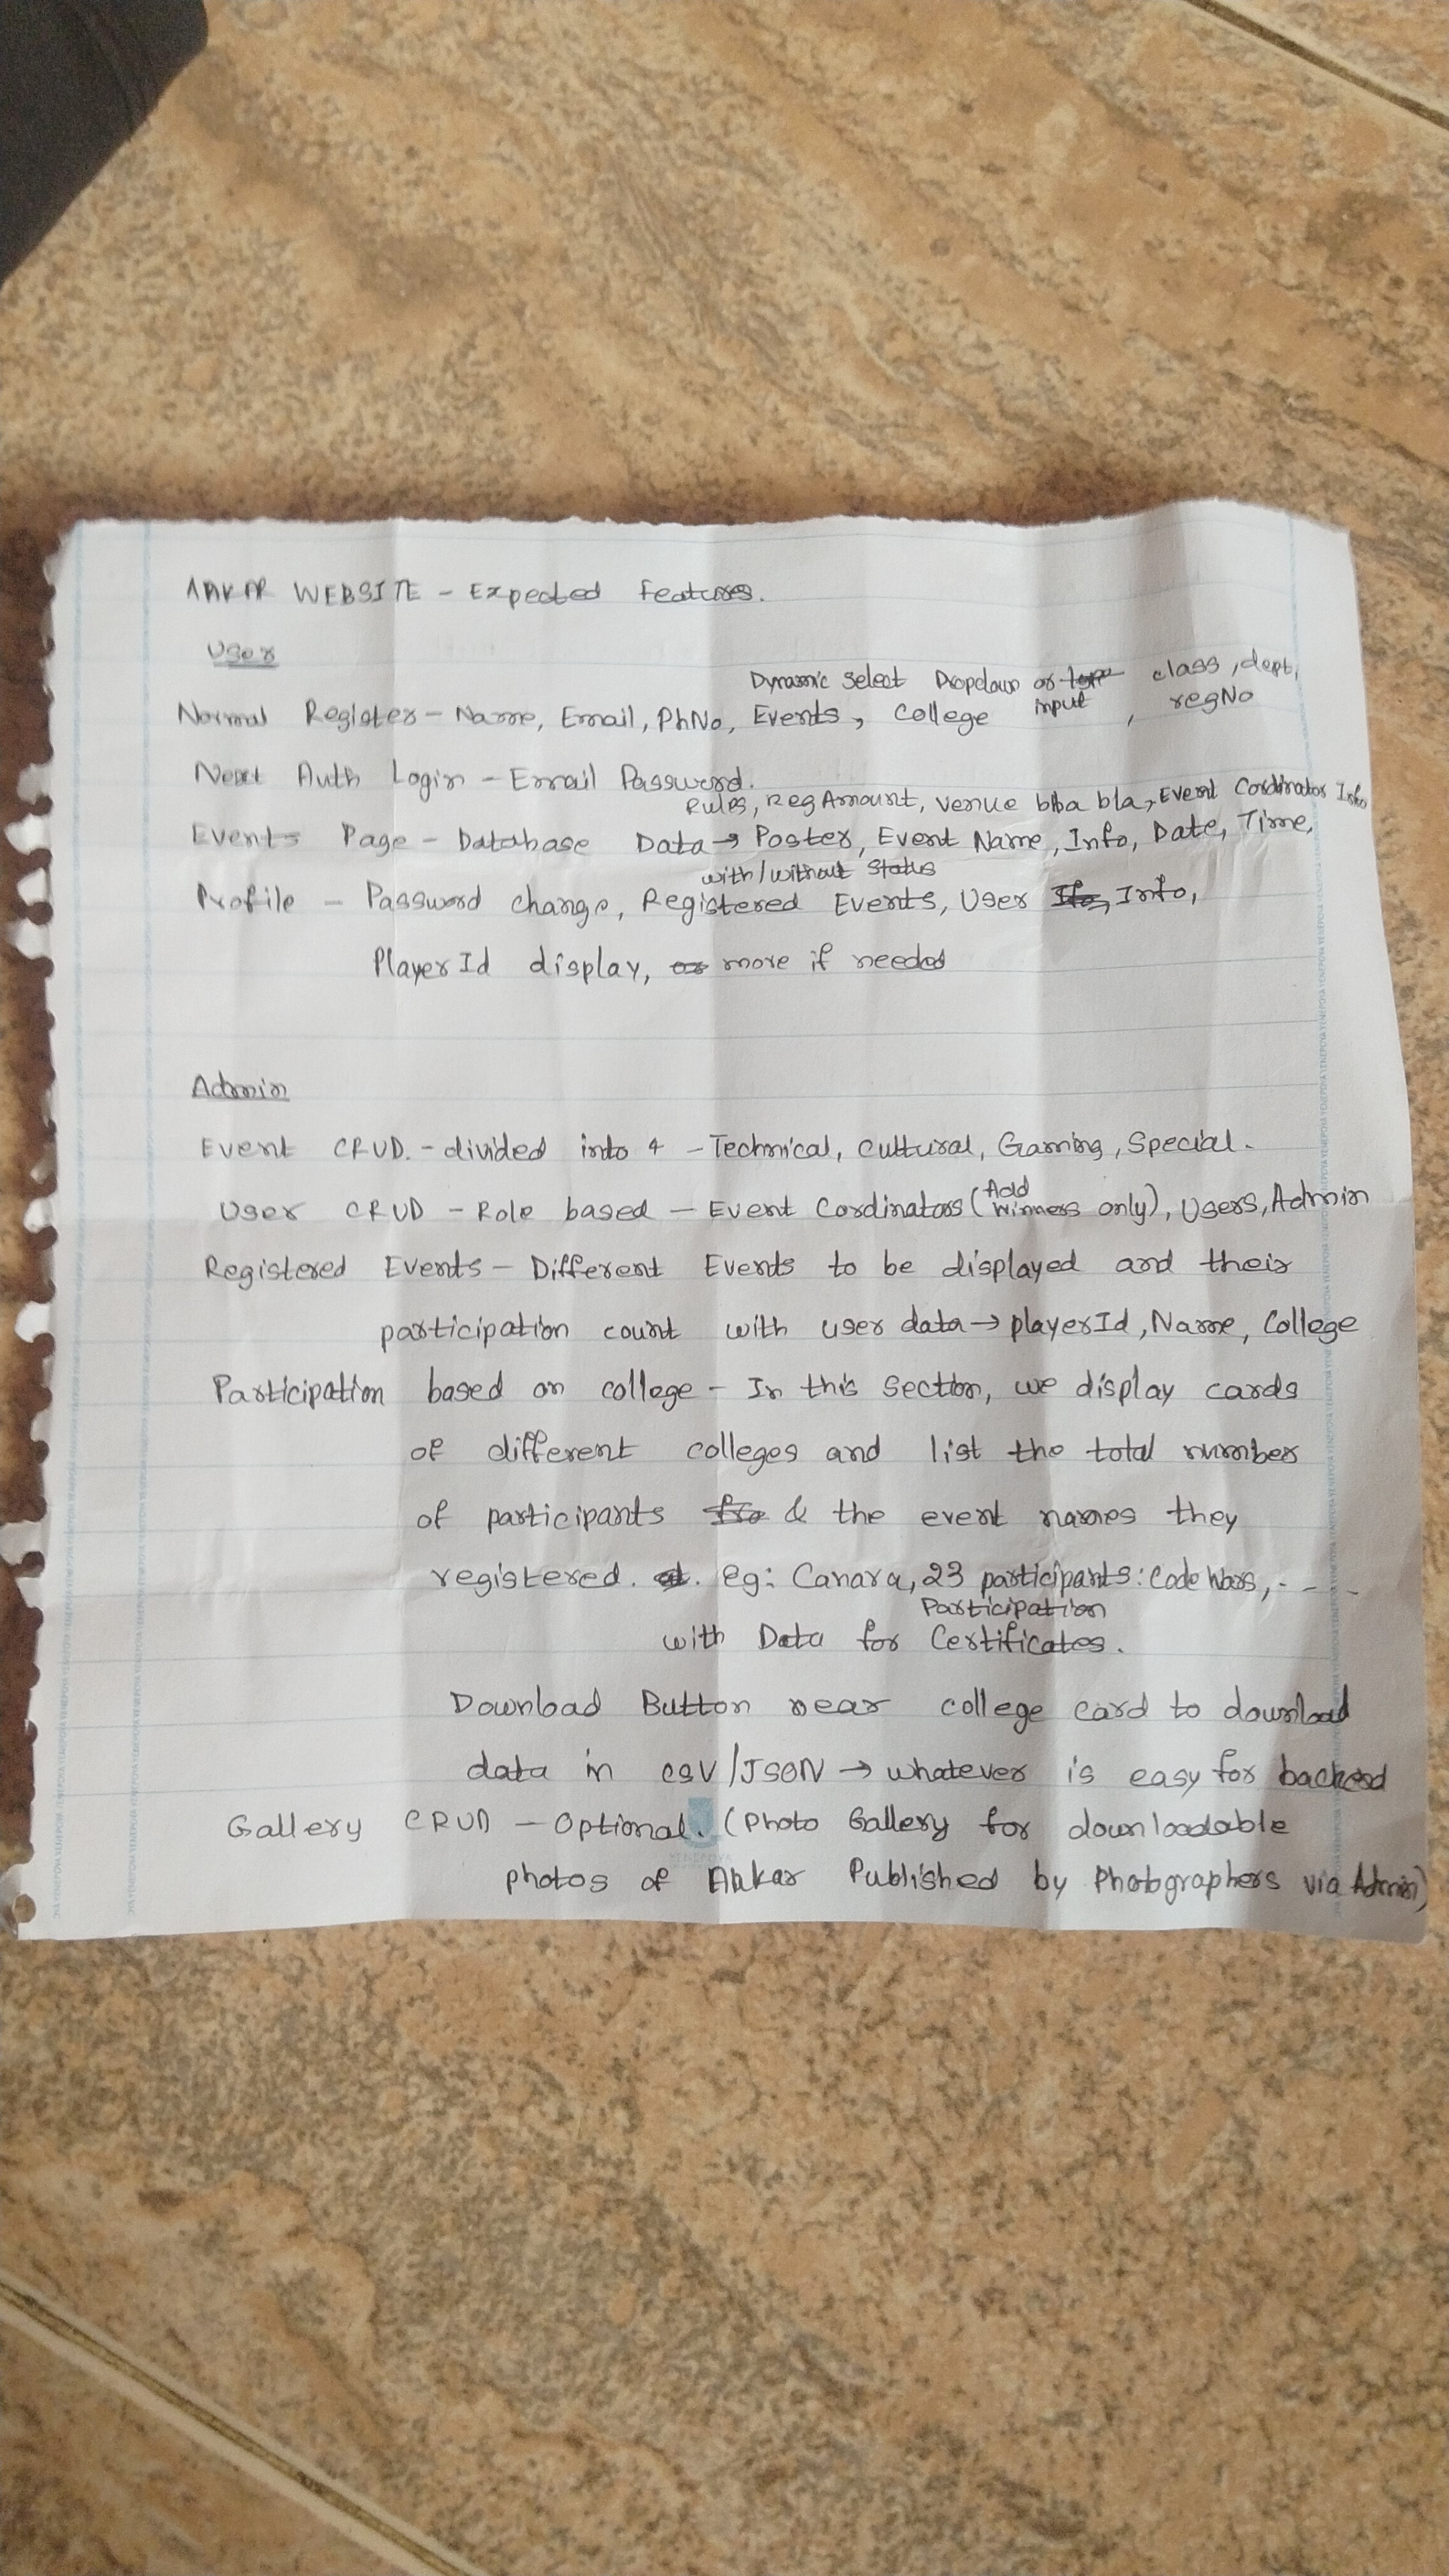 AAKAR WEBSITE - Expected Features.
User
Dynamic Select Dropdown or input class, dept, regNo
Normal Register - Name, Email, PhNo, Events, College ,
Next Auth Login - Email Password.
Rules, Reg Amount, venue bla bla, Event Cordinator Info
Events Page - Database Data → Poster, Event Name, Info, Date, Time,
with/without Status
Profile - Password change, Registered Events, User Info,
PlayerId display, more if needed
Admin
Event CRUD. - divided into 4 - Technical, Cultural, Gaming, Special.
Add
User CRUD - Role based - Event Cordinators (winners only), Users, Admin
Registered Events - Different Events to be displayed and their
participation count with user data → playerId, Name, College
Participation based on college - In this Section, we display cards
of different colleges and list the total number
of participants & the event names they
registered. eg: Canara, 23 participants: Code Wars, - - -
Participation
with Data for Certificates.
Download Button near college card to download
data in CSV/JSON → whatever is easy for backend
Gallery CRUD - Optional. (Photo Gallery for downloadable
photos of Aakar Published by Photographers via Admin)
YENEPOYA